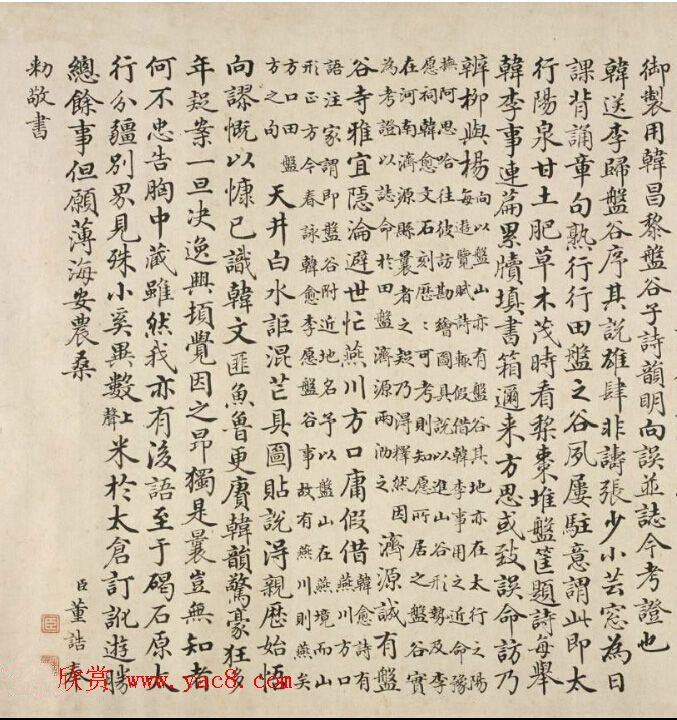 御製用韓昌黎盤谷子詩韻明向誤並誌今考證也
韓送李歸盤谷序其說雄肆非譸張少小芸窓為日
課背誦章句熟行行田盤之谷夙屢駐意謂此即太
行陽泉甘土肥草木茂時看棃棗堆盤筐題詩每舉
韓李事連篇累牘填書箱邇来方思或致誤命訪乃
辨柳與楊
向以盤山亦有盤谷其地亦在太行之陽
每遊覽賦詩輒假借韓李事用之近命豫
撫阿思哈往彼訪勘繪圖具說以進山谷形勢及李
愿祠韓愈文石刻歷:可考則知愿所居之盤谷實
在河南濟源縣曩者之疑乃得釋然因
為考證以誌命於田盤濟源兩泐之
濟源誠有盤
谷寺雅宜隱淪避世忙燕川方口庸假借
韓愈詩有
燕川方口
語注家謂即盤谷附近地名予以盤山在燕境而山
形正方今春詠韓愈李愿盤谷事故有燕川則燕矣
方口田盤
方之句
天井白水詎混芒具圖貼說得親歷始悟
向謬慨以慷已識韓文匪魚魯更賡韓韻驚豪狂多
年疑案一旦决逸興頓覺因之昂獨是曩豈無知者
何不忠告胸中藏雖然我亦有後語至于碣石原太
行分疆別界見殊小奚異數上聲米於太倉訂訛遊勝
總餘事但願薄海安農桑
臣董誥奉
勅敬書
欣赏 www.yac8.com